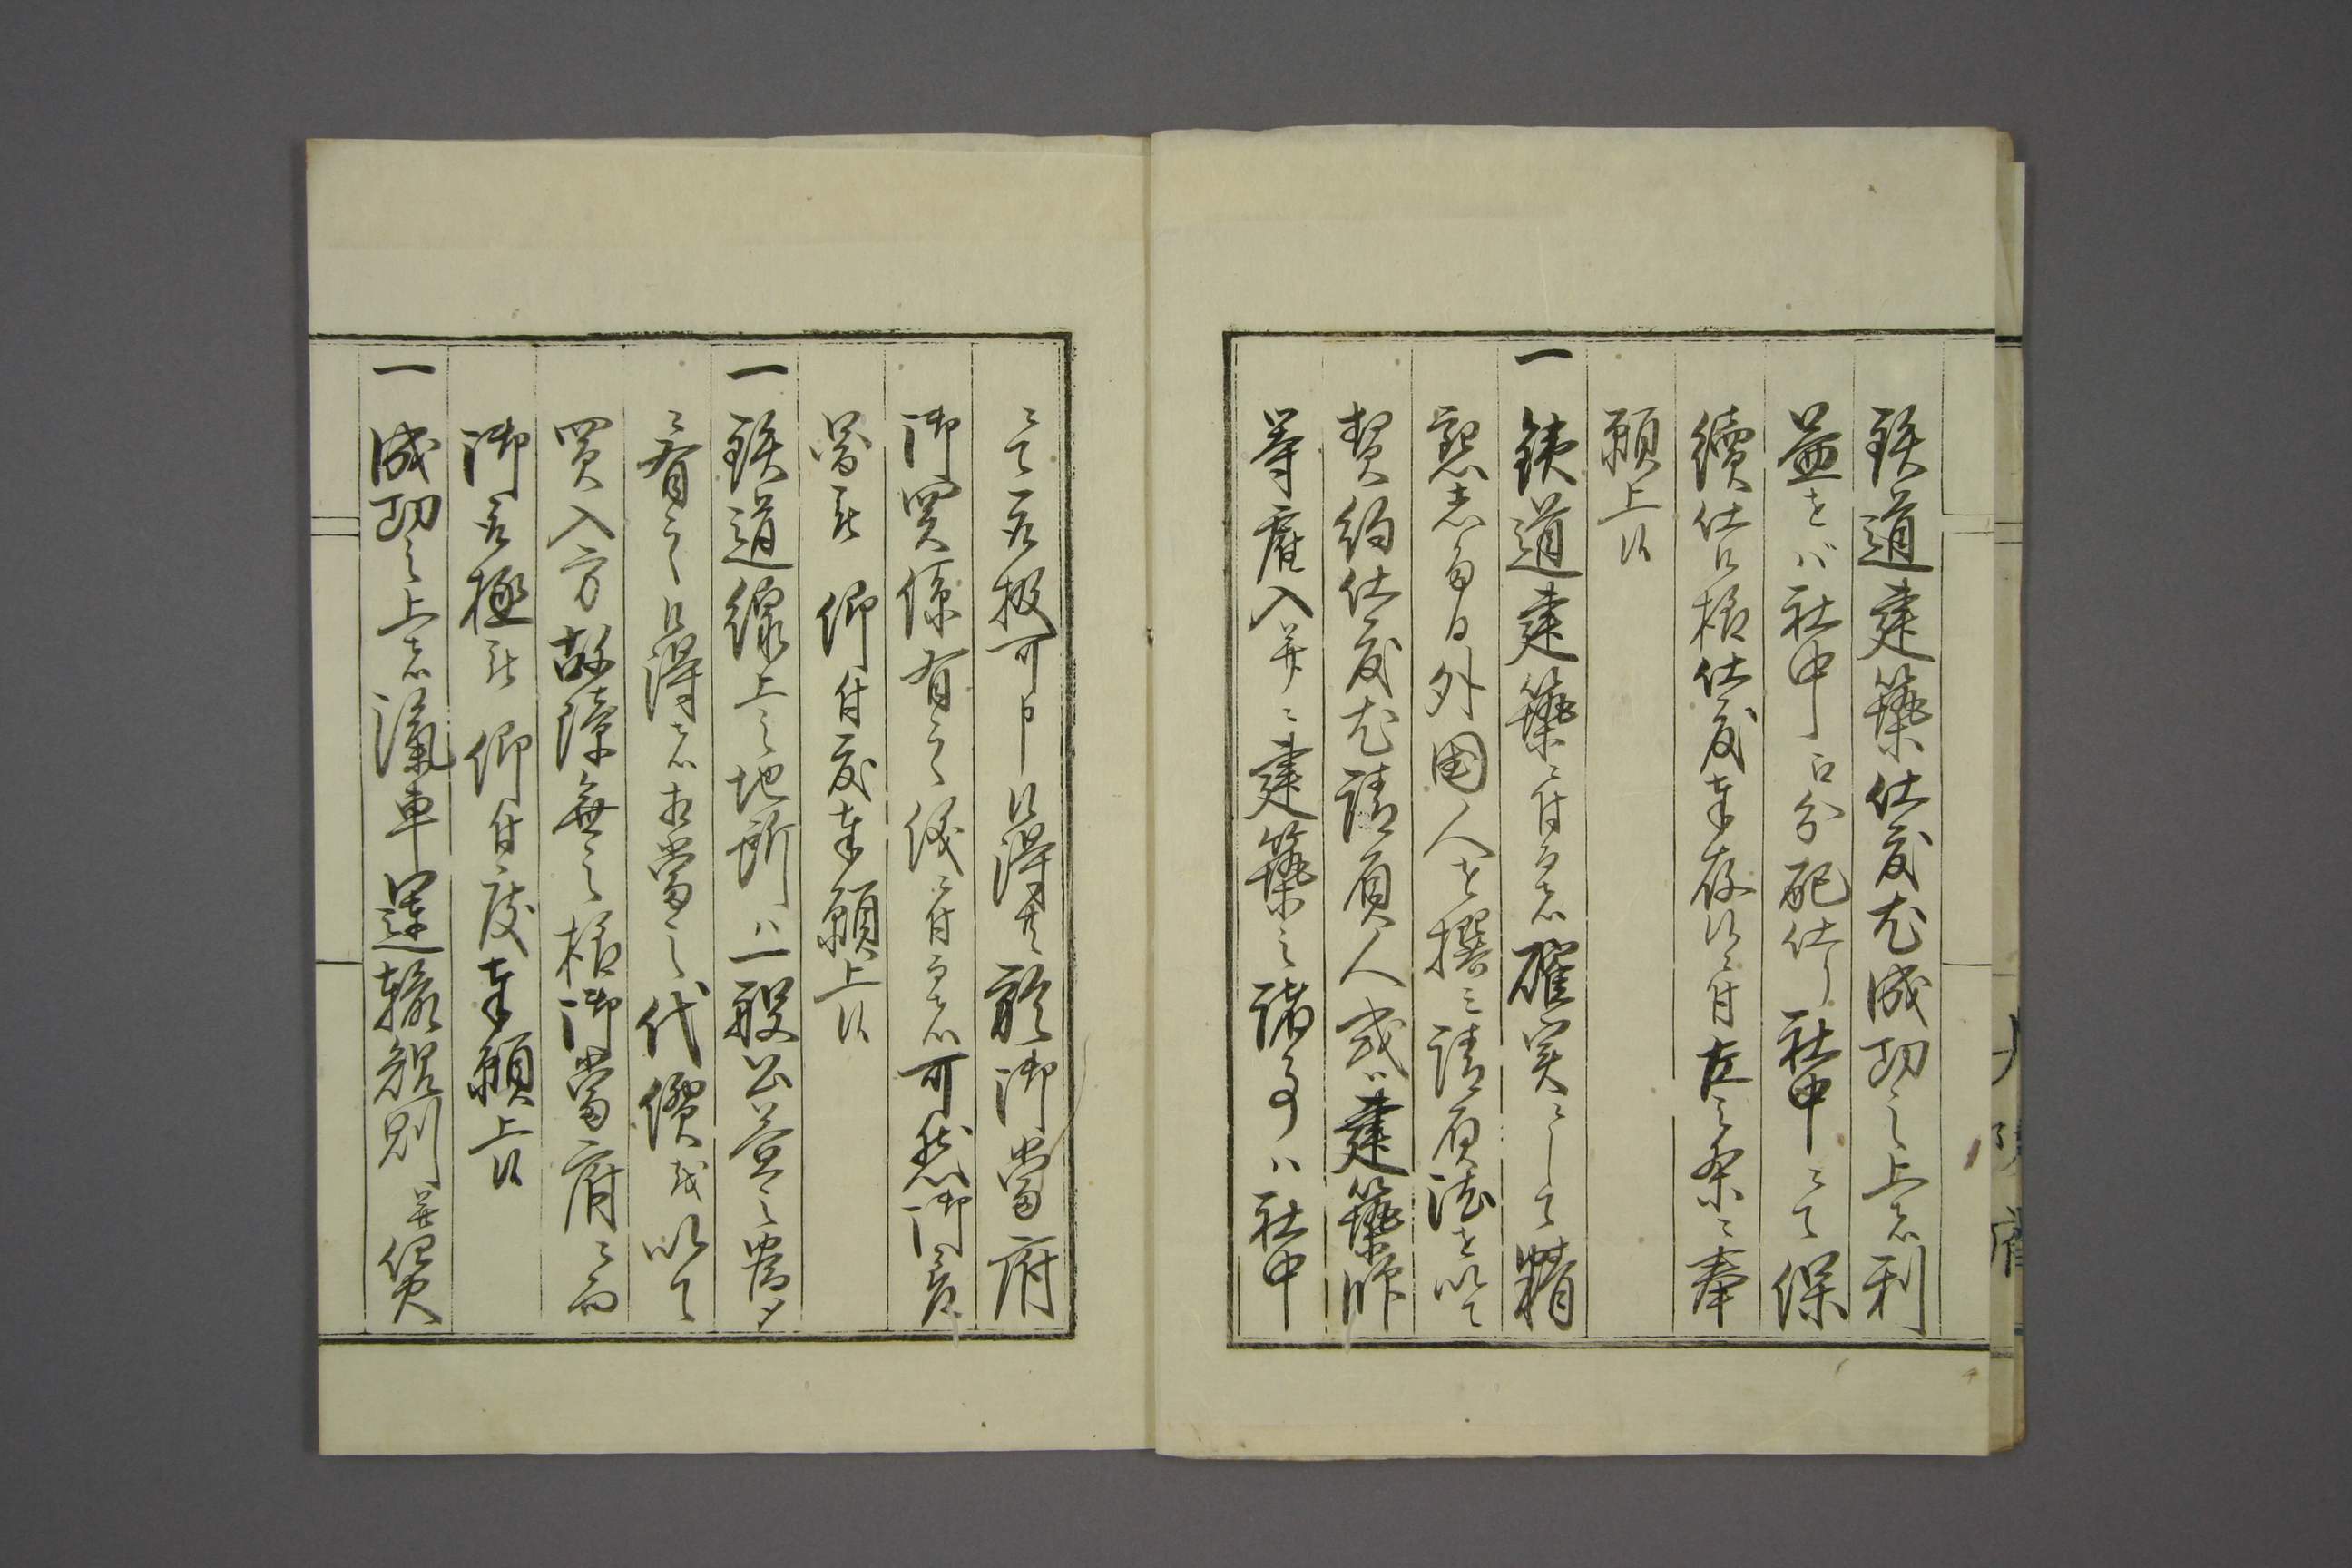 鉄道建築仕度尤成功之上者利
益をバ社中ニ分配仕り社中ニて保
續仕候様仕度奉存候ニ付左之条々奉
願上候
一鉄道建築ニ付而者確実ニして精
懇志有ル外国人を撰ミ請負法を以て
契約仕度尤請負人或ハ建築師
等雇入并ニ建築之諸事ハ社中
ニて取扱可申候得共於御當府
御関係有之儀ニ付而者可然御
被 仰付度奉願上候
一鉄道線上之地所ハ一般公益之為メ
ニ有之候得者相當之代價を以て
買入方故障無之様御當府ニ而
御取極被 仰付度奉願上候
一成功之上者滊車運輸規則並賃